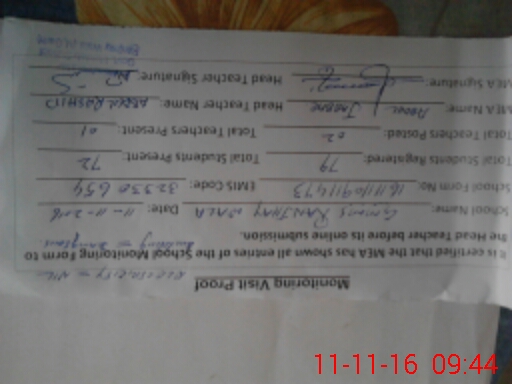 Monitoring Visit Proof
Electricity = Nil
It is certified that the MEA has shown all entries of the School Monitoring Form to
the Head Teacher before its online submission. Building = Dangerous
School Name: GMMPS RANJHAY WALA Date: 11-11-2016
School Form No: 1611110911473 EMIS Code: 32330654
Total Students Registered: 79 Total Students Present: 72
Total Teachers Posted: 02 Total Teachers Present: 01
MEA Name: ABDUL JABBAR Head Teacher Name: ABDUL RASHID
MEA Signature: Head Teacher Signature:
11-11-16 09:44